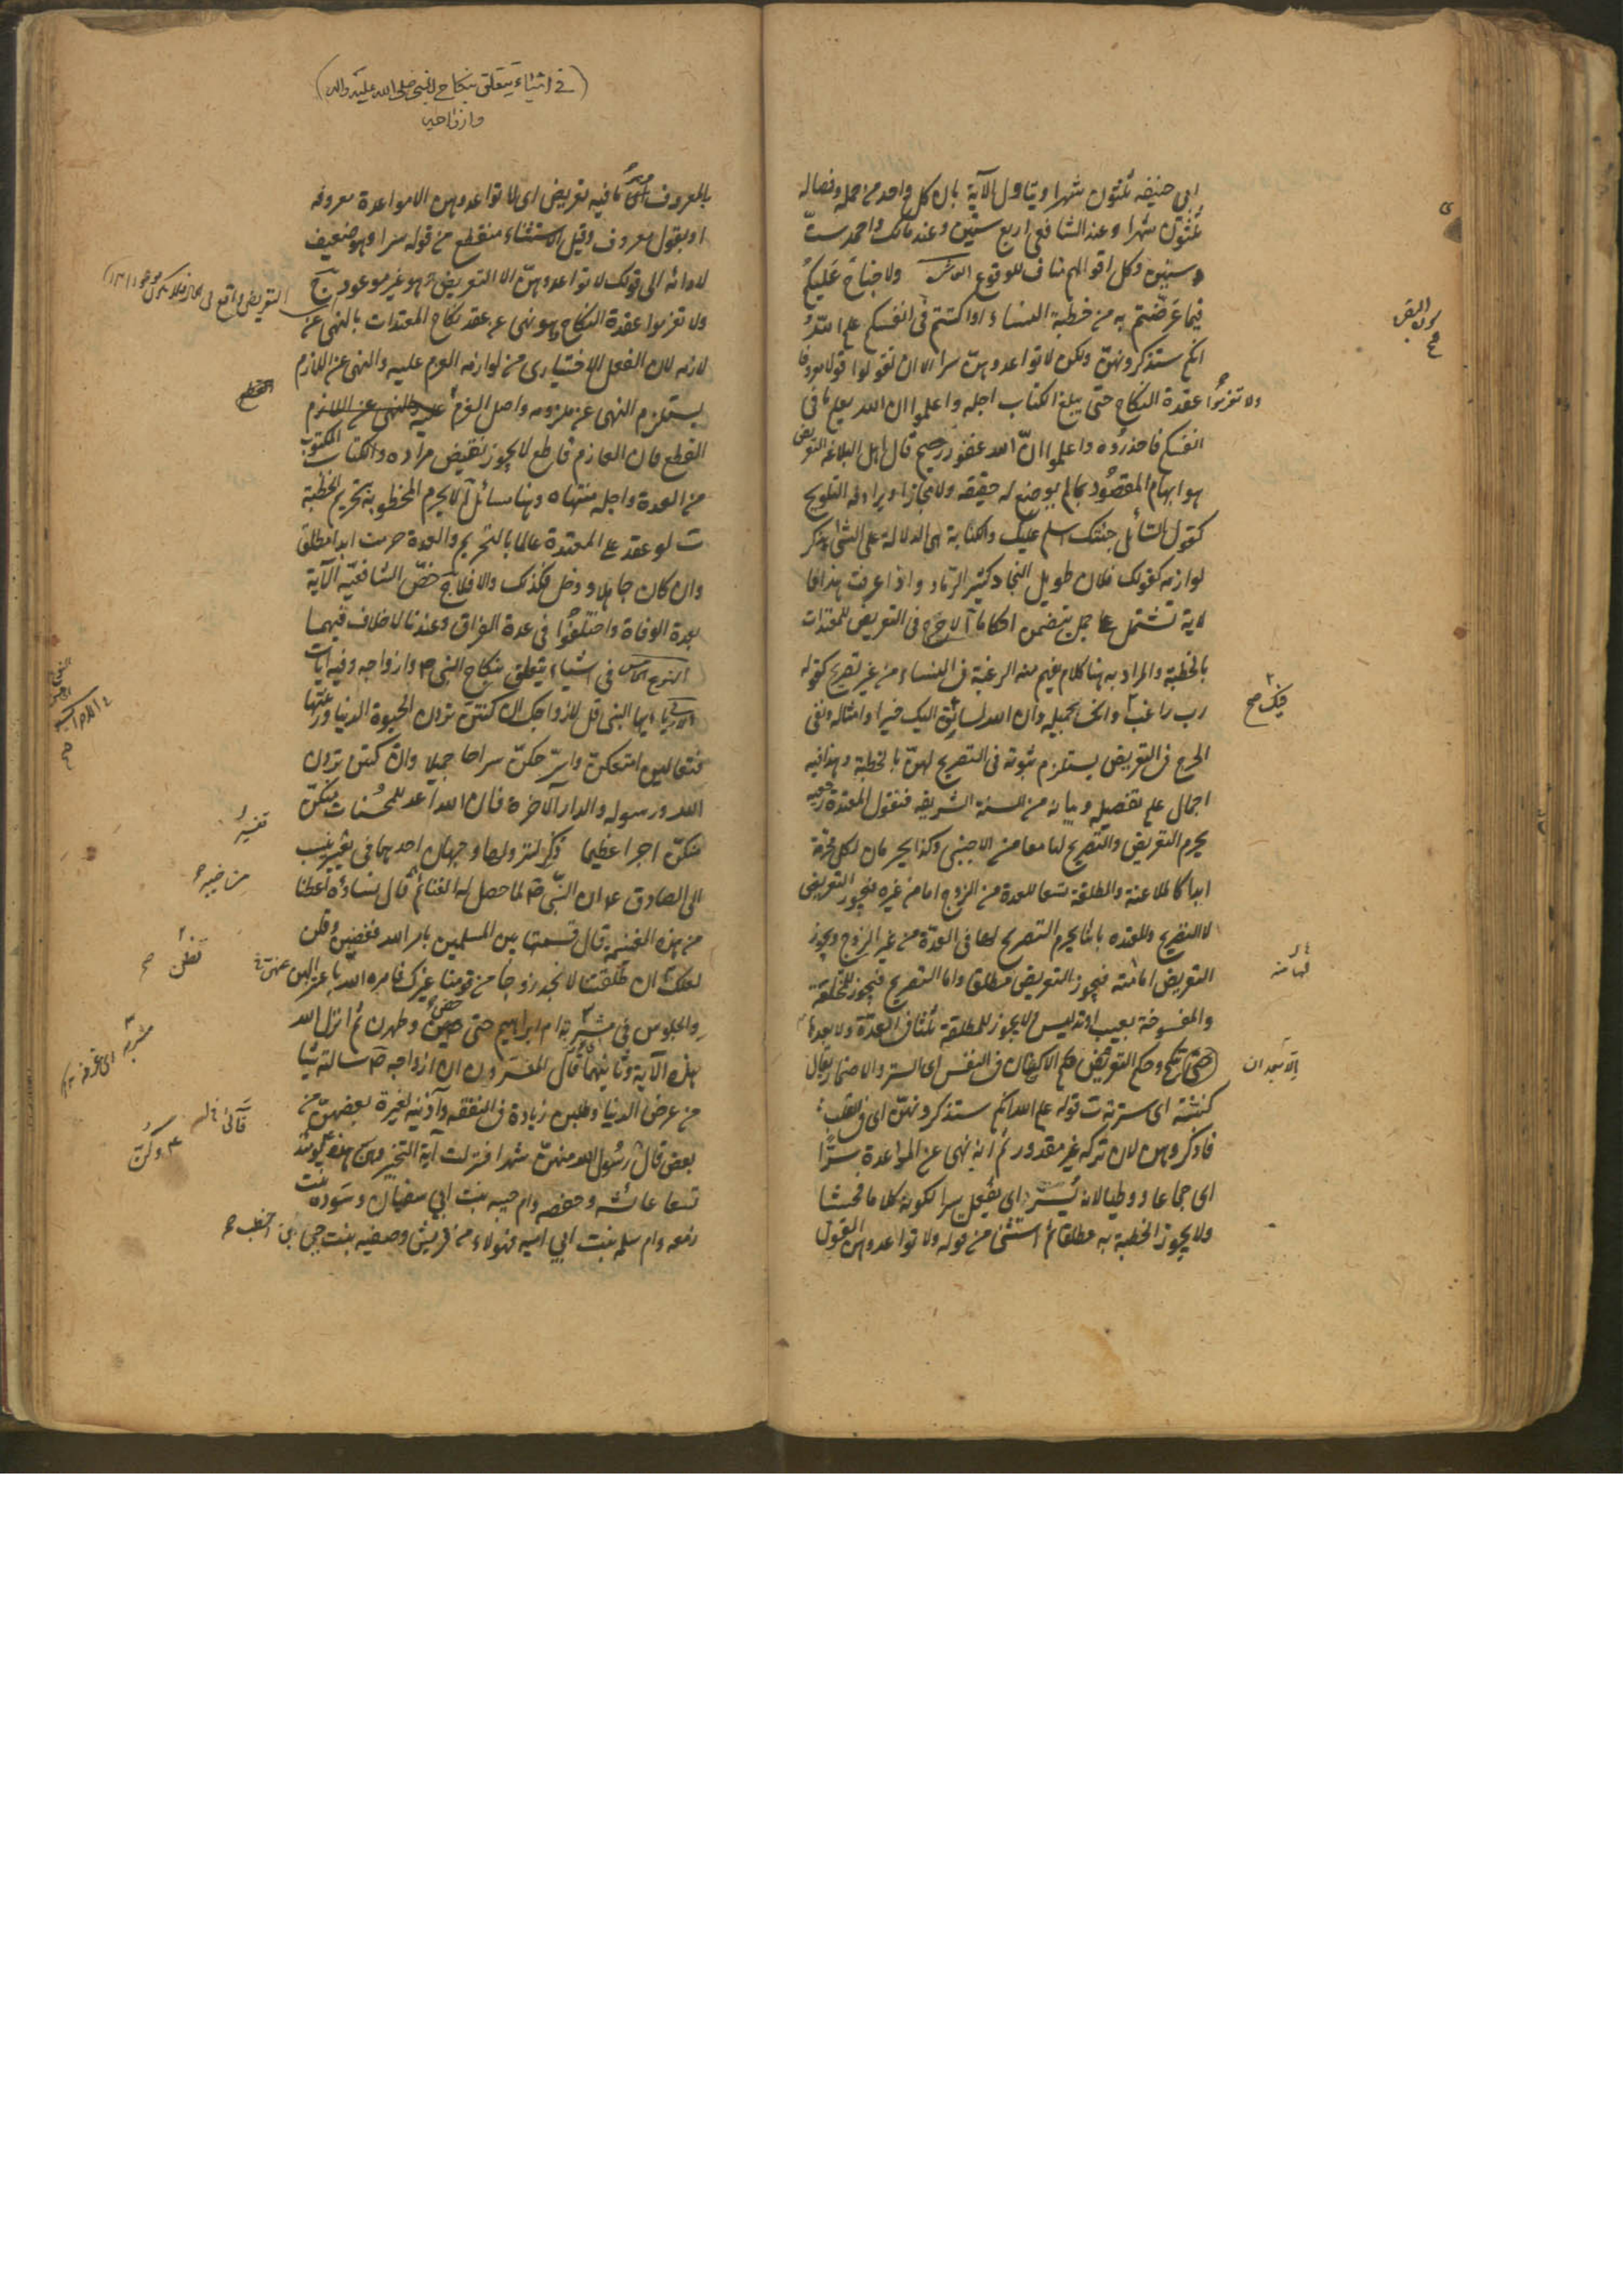 ابى حنيفه ثلثون شهرا ويتاول الآية بان كل واحد من حمله وفصاله
ثلثون شهرا وعند الشافعى اربع سنين وعند مالك واحمد ست
سنين وكل اقوالهم مناف للوقوع ولا جناح عليكم
فيما عرضتم به من خطبة النساء او اكننتم فى انفسكم علم الله
انكم ستذكرونهن ولكن لا تواعدوهن سرا الا ان تقولوا قولا معروفا
ولا تعزموا عقدة النكاح حتى يبلغ الكتاب اجله واعلموا ان الله يعلم ما فى
انفسكم فاحذروه واعلموا ان الله غفور رحيم قال اهل البلاغه التعريض
هو ايهام المقصود بما لم يوضع له حقيقه ولا مجازا ويرادفه التلويح
كقول السائل جئتك لاسلم عليك والكناية هى الدلالة على الشئ بذكر
لوازمه كقولك فلان طويل النجاد كثير الرماد واذا عرفت هذا فا
لاية تشتمل على جمل يتضمن احكاما آ لا حرج فى التعريض للمعتدات
بالخطبة والمراد به هنا كلام يفهم منه الرغبة فى النساء من غير تصريح كقوله
رب راغب فيك وانك لجميله وان الله لسائق اليك خيرا وامثاله ونفى
الحرج فى التعريض يستلزم ثبوته فى التصريح لهن بالخطبة وهذا فيه
اجمال علم تفصيله وبيانه من السنة الشريفه فنقول المعتدة رجعيه
يحرم التعريض والتصريح لها معا من الاجنبى وكذا يحرمان لكل محرمة
ابدا كالملاعنة والمطلقة تسعا للعدة من الزوج اما من غيره فيجوز التعريض
لا التصريح والمعتده باينا يحرم التصريح لها فى العدة من غير الزوج ويجوز
التعريض اما منه فيجوز التعريض مطلقا واما التصريح فيجوز للمختلعة
والمفسوخة بعيب او تدليس ولا يجوز للمطلقة ثلثا فى العدة ولا بعدها
الا بعد ان
حتى تنكح وحكم التعريض حكم الاكنان فى النفس اى الستر والاضمار يقال
كننته اى سترته ت قوله علم الله انكم ستذكرونهن اى فى القلب
فاذكروهن لان تركه غير مقدور ثم انه نهى عن المواعدة سرا
اى جماعا ووطيا لانه يسر اى يفعل سرا لكونه كلاما فحشا
ولا يجوز الخطبة به مطلقا ثم استثنى من قوله ولا تواعدوهن القول
(فى اشياء يتعلق بنكاح النبى صلى الله عليه واله
وازواجه)
بالمعروف اى ما فيه تعريض اى لا تواعدوهن الا مواعدة معروفه
او بقول معروف وقيل الاستثناء منقطع من قوله سرا وهو ضعيف
لادائه الى قولك لا تواعدوهن الا التعريض وهو غير موعود ج
ولا تعزموا عقدة النكاح وهو نهى عن عقد نكاح المعتدات بالنهى عن
لازمه لان الفعل الاختيارى من لوازمه العزم عليه والنهى عن اللازم
يستلزم النهى عن ملزومه واصل العزم
القطع فان العازم قاطع لا يجوز نقيض مراده والكتاب المكتوب
من العدة واجله منتهاه وهنا مسائل آ لا يحرم المخطوبه بتحريم الخطبة
ت لو عقد على المعتدة عالما بالتحريم والعدة حرمت ابدا مطلقا
وان كان جاهلا ودخل فكذلك والا فلا ج خص الشافعية الآية
بعدة الوفاة واختلفوا فى عدة الفراق وعندنا لا خلاف فيهما
النوع الخامس فى اشياء يتعلق بنكاح النبى ص وازواجه وفيه ايات
الاولى يا ايها النبى قل لازواجك ان كنتن تردن الحيوة الدنيا وزينتها
فتعالين امتعكن واسرحكن سراحا جميلا وان كنتن تردن
الله ورسوله والدار الآخرة فان الله اعد للمحسنات منكن
منكن اجرا عظيما ذكر لنزولها وجهان احدهما فى تفسير ينسب
الى الصادق ع ان النبى ص لما حصل له الغنائم من خيبر قال نساؤه اعطنا
من هذه الغنيمة قال قسمتها بين المسلمين بامر الله فغضبن وقلن
لعلك تظن ان طلقتنا لا نجد زوجا من قومنا غيرك فامره الله باعتزالهن
والجلوس فى مشربة ام ابراهيم حتى حضن وطهرن ثم انزل الله
هذه الآية وثانيهما قال المفسرون ان ازواجه ص سالنه شيا
من عرض الدنيا وطلبن زيادة فى النفقه وآذينه لغيرة بعضهن من
بعض فآلى رسول الله منهن شهرا فنزلت آية التخيير وكن يومئذ
تسعا عائشه وحفصه وام حبيبه بنت ابى سفيان وسوده بنت
زمعه وام سلمه بنت ابى اميه فهؤلاء من قريش وصفيه بنت حيى بن اخطب